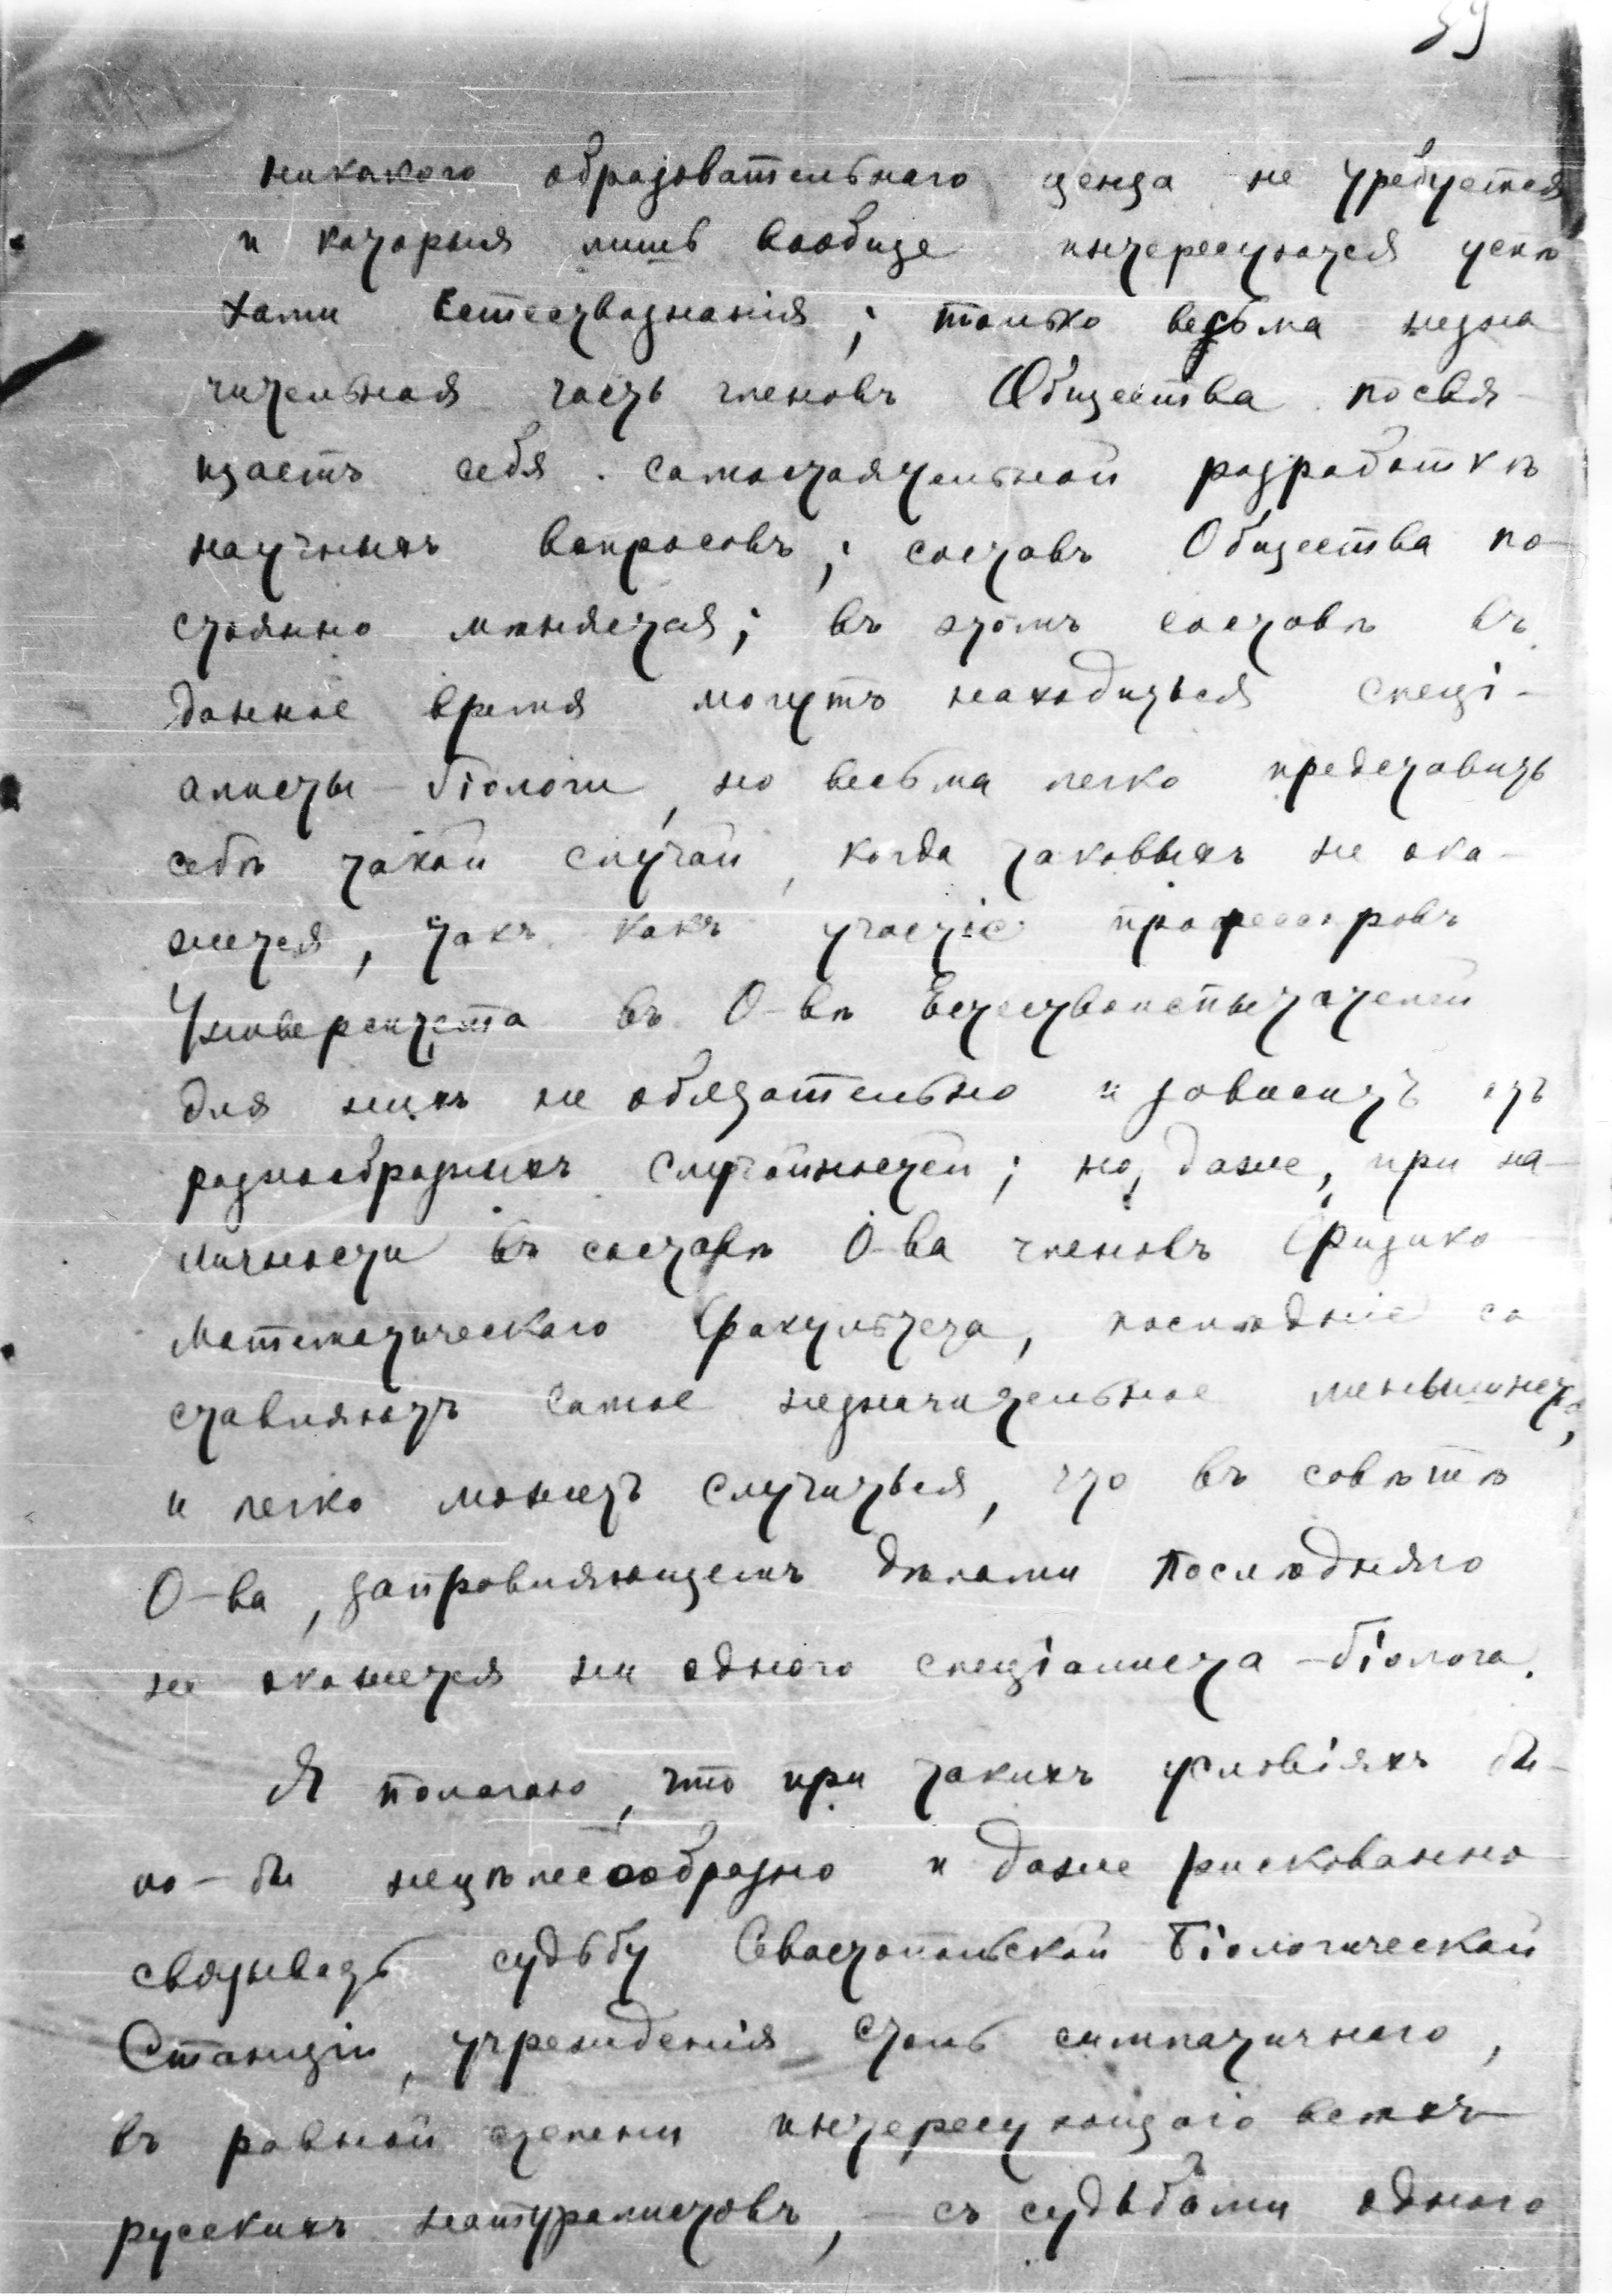 59
никакого образовательнаго ценза не требуется
и которыя лишь вообще интересуются успѣ
хами Естествознанія; только весьма незна
чительная часть членовъ Общества посвя-
щаетъ себя самостоятельной разработкѣ
научныхъ вопросовъ; составъ Общества по-
стоянно мѣняется; въ этомъ составѣ въ
данное время могутъ находиться спеці-
алисты-біологи, но весьма легко представить
себѣ такой случай, когда таковыхъ не ока-
жется, такъ какъ участіе профессоровъ
Университета въ О-вѣ Естествоиспытателей
для нихъ не обязательно и зависитъ отъ
разнообразныхъ случайностей; но, даже, при на-
личности въ составѣ О-ва членовъ Физико
Математическаго Факультета, послѣдніе со
ставляютъ самое незначительное меньшинство,
и легко можетъ случиться, что въ совѣтѣ
О-ва, заправляющемъ дѣлами послѣдняго
не окажется ни одного спеціалиста-біолога.
Я полагаю, что при такихъ условіяхъ бы-
ло-бы нецѣлесообразно и даже рискованно
связывать судьбу Севастопольской Біологической
Станціи, учрежденія столь симпатичнаго,
въ равной степени интересующаго всѣхъ
русскихъ натуралистовъ, - съ судьбами одного